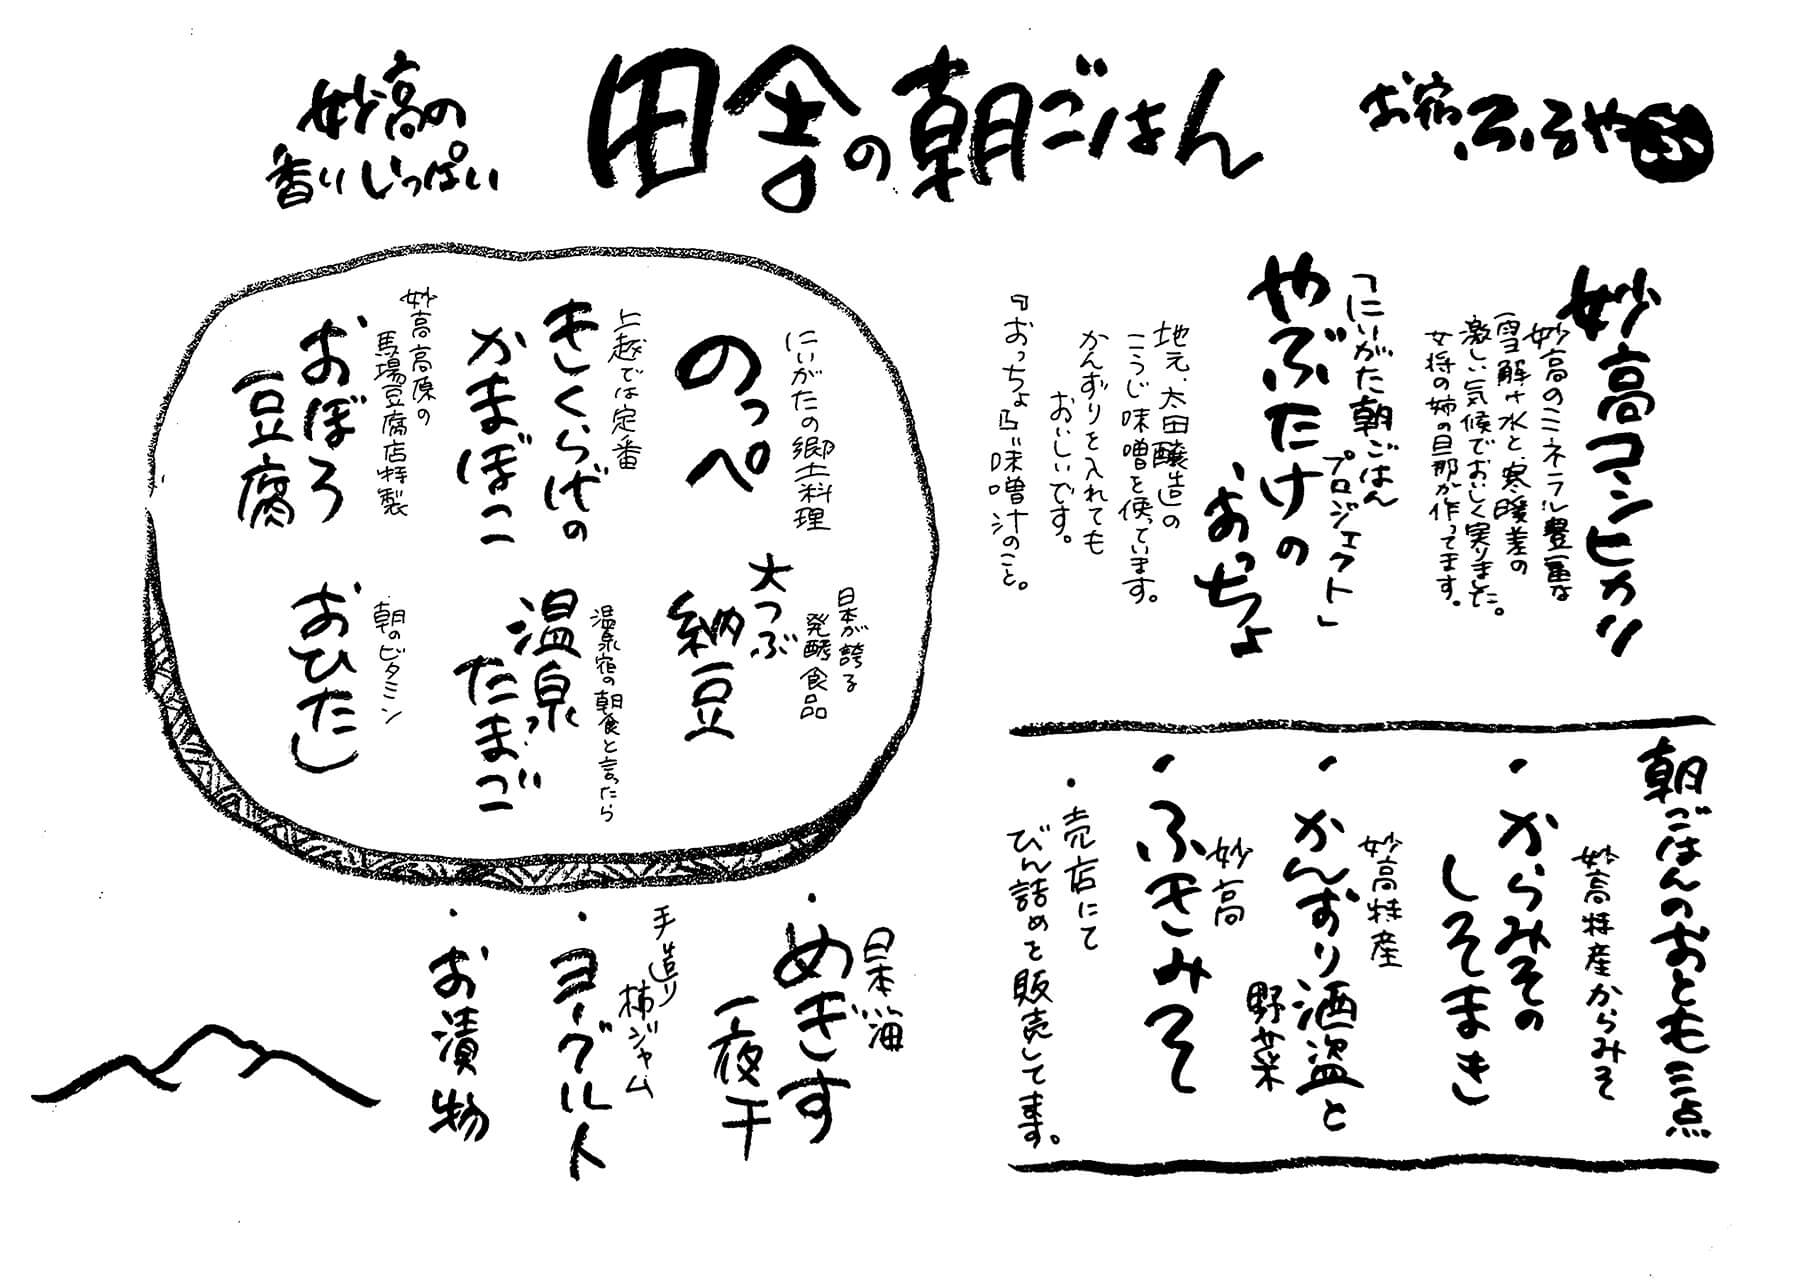 お宿ふるや
田舎の朝ごはん
妙高の
香りいっぱい
妙高コシヒカリ
妙高のミネラル豊富な
雪解け水と、寒暖差の
激しい気候でおいしく実りました。
女将の姉の旦那が作ってます。
「にいがた朝ごはん
プロジェクト」
やぶたけの
、おっちょ
地元、太田醸造の
こうじ味噌を使っています。
かんずりを入れても
おいしいです。
『おっちょ』味噌汁のこと。
にいがたの郷土料理
のっぺ
上越では定番
きくらげの
かまぼこ
妙高高原の
馬場豆腐店特製
おぼろ
豆腐
日本が誇る
発酵食品
大つぶ
納豆
温泉宿の朝食と言ったら
温泉
たまご
朝のビタミン
おひたし
朝ごはんのおとも三点
妙高特産からみそ
・からみその
しそまき
妙高特産
・かんずり酒盗と
野菜
妙高
・ふきみそ
・売店にて
びん詰めを販売してます。
日本海
・めぎす
一夜干
手造り
柿ジャム
・ヨーグルト
・お漬物